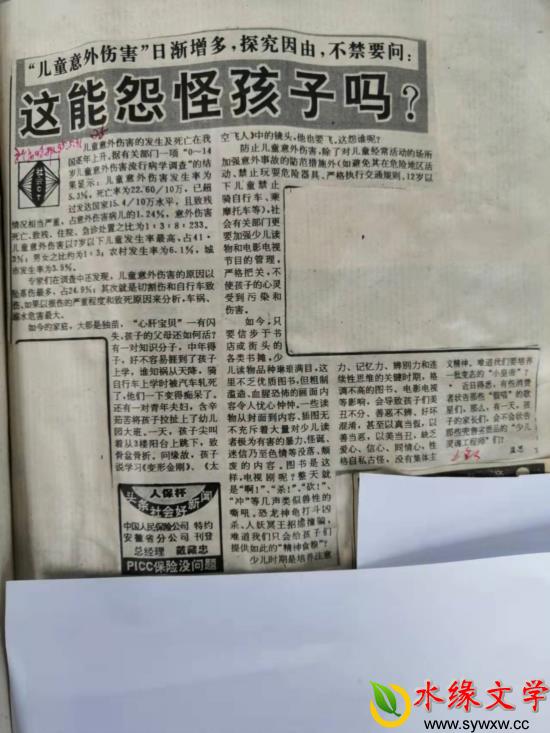 “儿童意外伤害”日渐增多，探究因由，不禁要问：
这能怨怪孩子吗？
儿童意外伤害的发生及死亡在我
国逐年上升。据有关部门一项“0—14
岁儿童意外伤害流行病学调查”的结
果显示：儿童意外伤害发生率为
5.3%，死亡率为22.60/10万，已超
过发达国家15.4/10万水平，且致残
情况相当严重，占意外伤害病儿的1.24%，意外伤害
死亡、致残、住院、急诊处置之比为1：3：8：233。
儿童意外伤害以7岁以下儿童发生率最高，占41·
3%；男女之比约为1：3；农村发生率为6.1%，城
市发生率为3.5%。
专家们在调查中还发现，儿童意外伤害的原因以
坠落伤最多，占24.9%；其次就是切割伤和自行车致
伤。如果以损伤的严重程度和致死原因来分析，车祸、
溺水危害最大。
如今的家庭，大都是独苗，“心肝宝贝”一有闪
失，孩子的父母还如何活？
有一对知识分子，中年得
子，好不容易捱到了孩子上
学，谁知祸从天降，骑
自行车上学时被汽车轧死
了，他们一下变得痴呆了。
还有一对青年夫妇，含辛
茹苦将孩子拉扯上了幼儿
园大班。一天，孩子尖叫
着从3楼阳台上跳下，致
骨盆骨折。问缘故，孩子
说学习《变形金刚》、《太
空飞人》中的镜头，他也要飞。这怨谁呢？
防止儿童意外伤害，除了对儿童经常活动的场所
加强意外事故的防范措施外（如避免其在危险地区活
动、禁止玩耍危险器具、严格执行交通规则、12岁以
下儿童禁止
骑自行车、乘
摩托车等），社
会有关部门更
要加强少儿读
物和电影电视
节目的管理，
严格把关，不
使孩子的心灵
受到污染和
伤害。
如今，只
要信步于书
店或街头的
各类书摊，少
儿读物品种琳琅满目，这
里不乏优质图书，但粗制
滥造、血腥恐怖的画面内
容令人忧心忡忡，一些读
物从封面到内容、插图无
不充斥着大量对少儿读
者极为有害的暴力、怪诞、
迷信乃至色情等没落、颓
废的内容。图书是这样，
电视剧呢？整天就
是“啊！”、“杀！”、“砍！”、
“冲”等几声类似兽性的
嘶吼。恐龙神龟打斗凶
杀、人妖冥王招摇撞骗，
难道我们只会给孩子们
提供如此的“精神食粮”？
少儿时期是培养注意
力、记忆力、辨别力和连
续性思维的关键时期，格
调不高的图书、电影电视
等影响，会导致孩子们美
丑不分、善恶不辨、好坏
混淆，甚至以真当假，以
善当恶，以美当丑，缺乏
爱心、信心、同情心，性
格自私古怪，没有集体主
义精神，难道我们要培养
一批变态的“小皇帝”？
近日得悉，有些消费
者状告那些“假唱”的歌
星们。那么，有一天，孩
子的家长们，会不会状告
那些变质劣质品的“少儿
灵魂工程师”们？
人保杯
头条社会好新闻
中国人民保险公司 特约
安徽省分公司 刊登
总经理 戴藏忠
PICC保险没问题
水缘文学
www.sywxw.cc